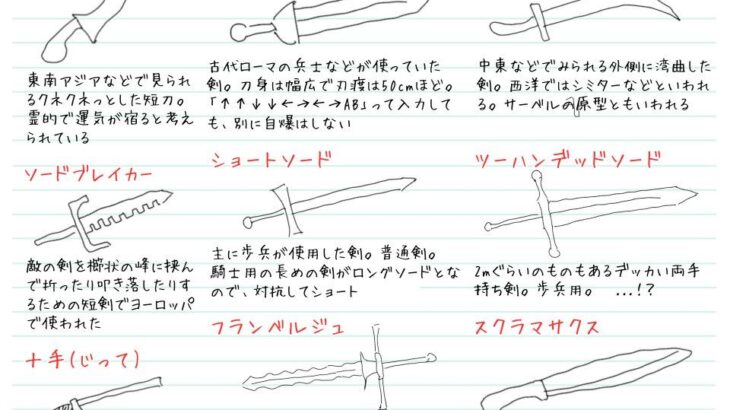 東南アジアなどで見られ
るクネクネっとした短刀。
霊的で運気が宿ると考え
られている
古代ローマの兵士などが使っていた
剣。刀身は幅広で刃渡は50cmほど。
「↑↑↓↓←→←→AB」って入力して
も、別に自爆はしない
中東などでみられる外側に湾曲した
剣。西洋ではシミターなどといわれ
る。サーベルの原型ともいわれる
ソードブレイカー
敵の剣を櫛状の峰に挟ん
で折ったり叩き落したりす
るための短剣でヨーロッパ
で使われた
ショートソード
主に歩兵が使用した剣。普通剣。
騎士用の長めの剣がロングソードとな
ので、対抗してショート
ツーハンデッドソード
2mぐらいのものもあるデッカい両手
持ち剣。歩兵用。 ...!?
十手(じって)
フランベルジュ
スクラマサクス